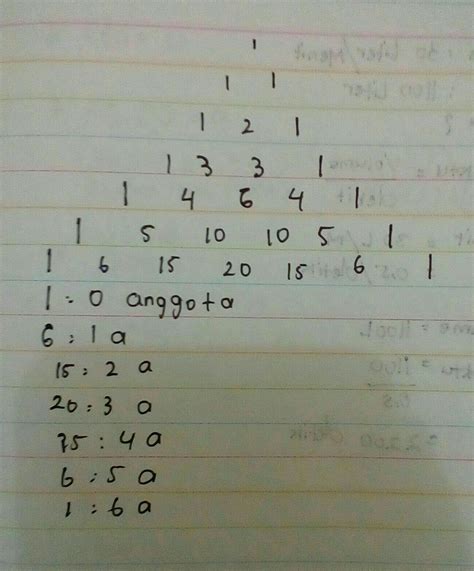 1
1 1
1 2 1
1 3 3 1
1 4 6 4 1
1 5 10 10 5 1
1 6 15 20 15 6 1
1 : 0 anggota
6 : 1 a
15 : 2 a
20 : 3 a
15 : 4 a
6 : 5 a
1 : 6 a